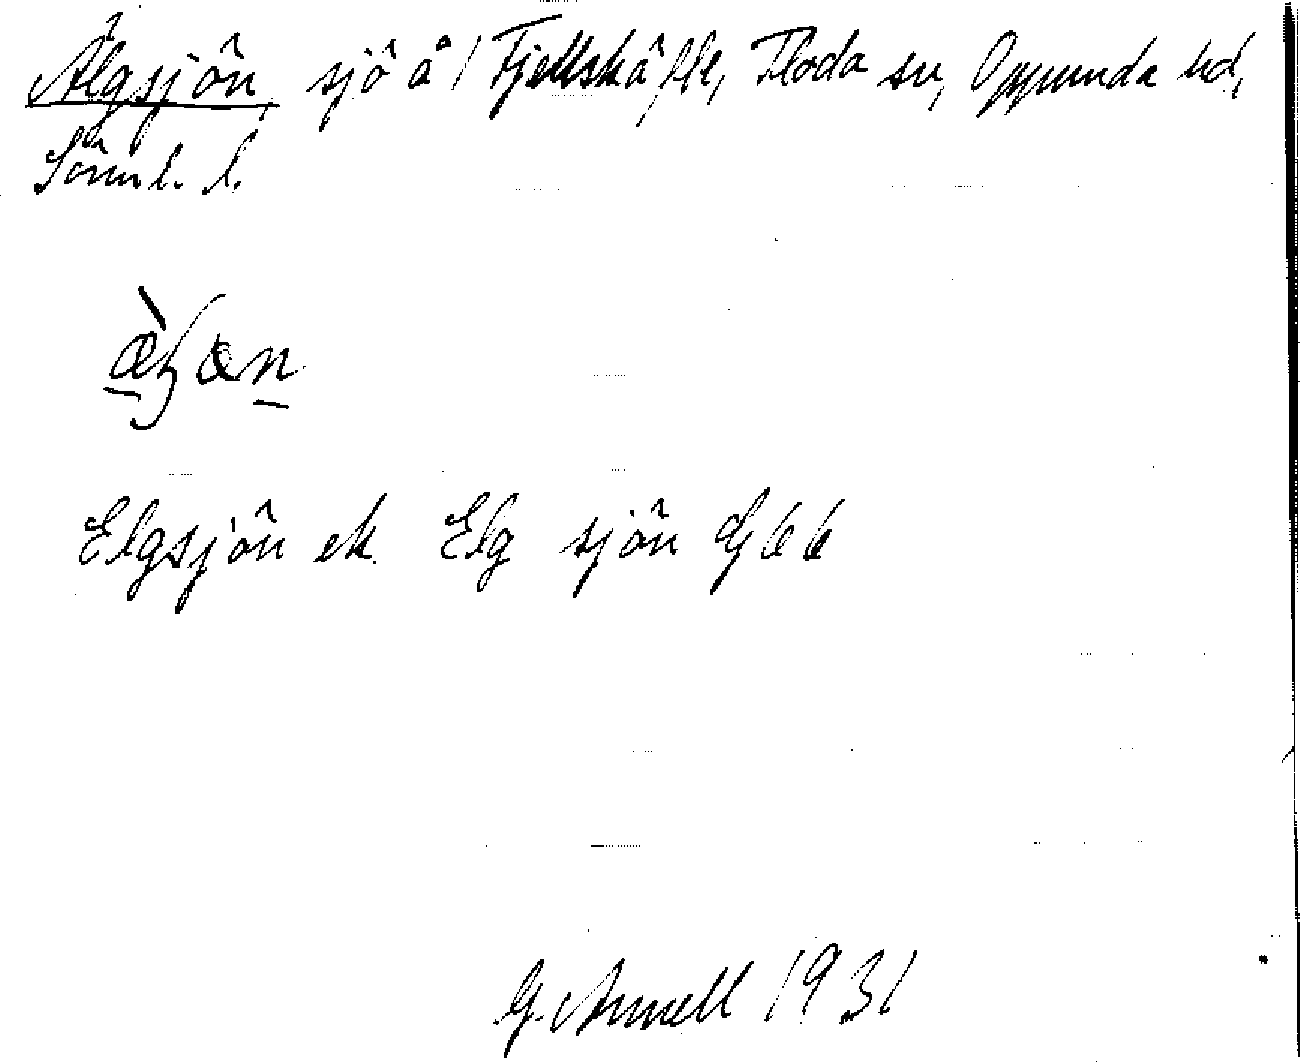 Älgsjön sjö å / Fjellskäfte, Floda sn, Oppunda hd,
Sörml. l.
Elgsjön ek Elg sjön Gj 66
G. Arnell 1931